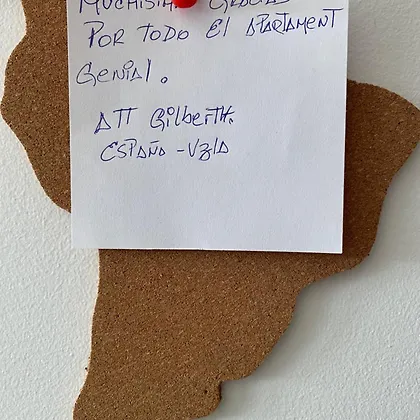 MUCHISIMAS GRACIAS
POR TODO El APARTAMENT
GENIAl.
ATT GilbertH.
ESPAÑA - VZLA